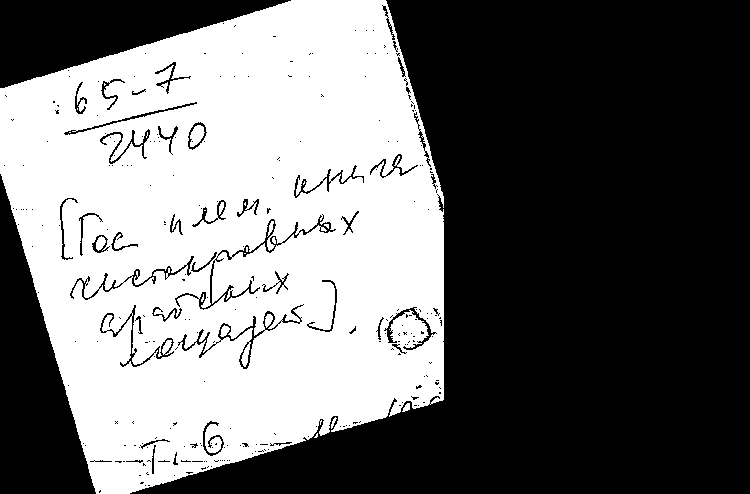 65-7
2440
[Гос плем. книга
чистокровных
арабских
лошадей].
Т. 6